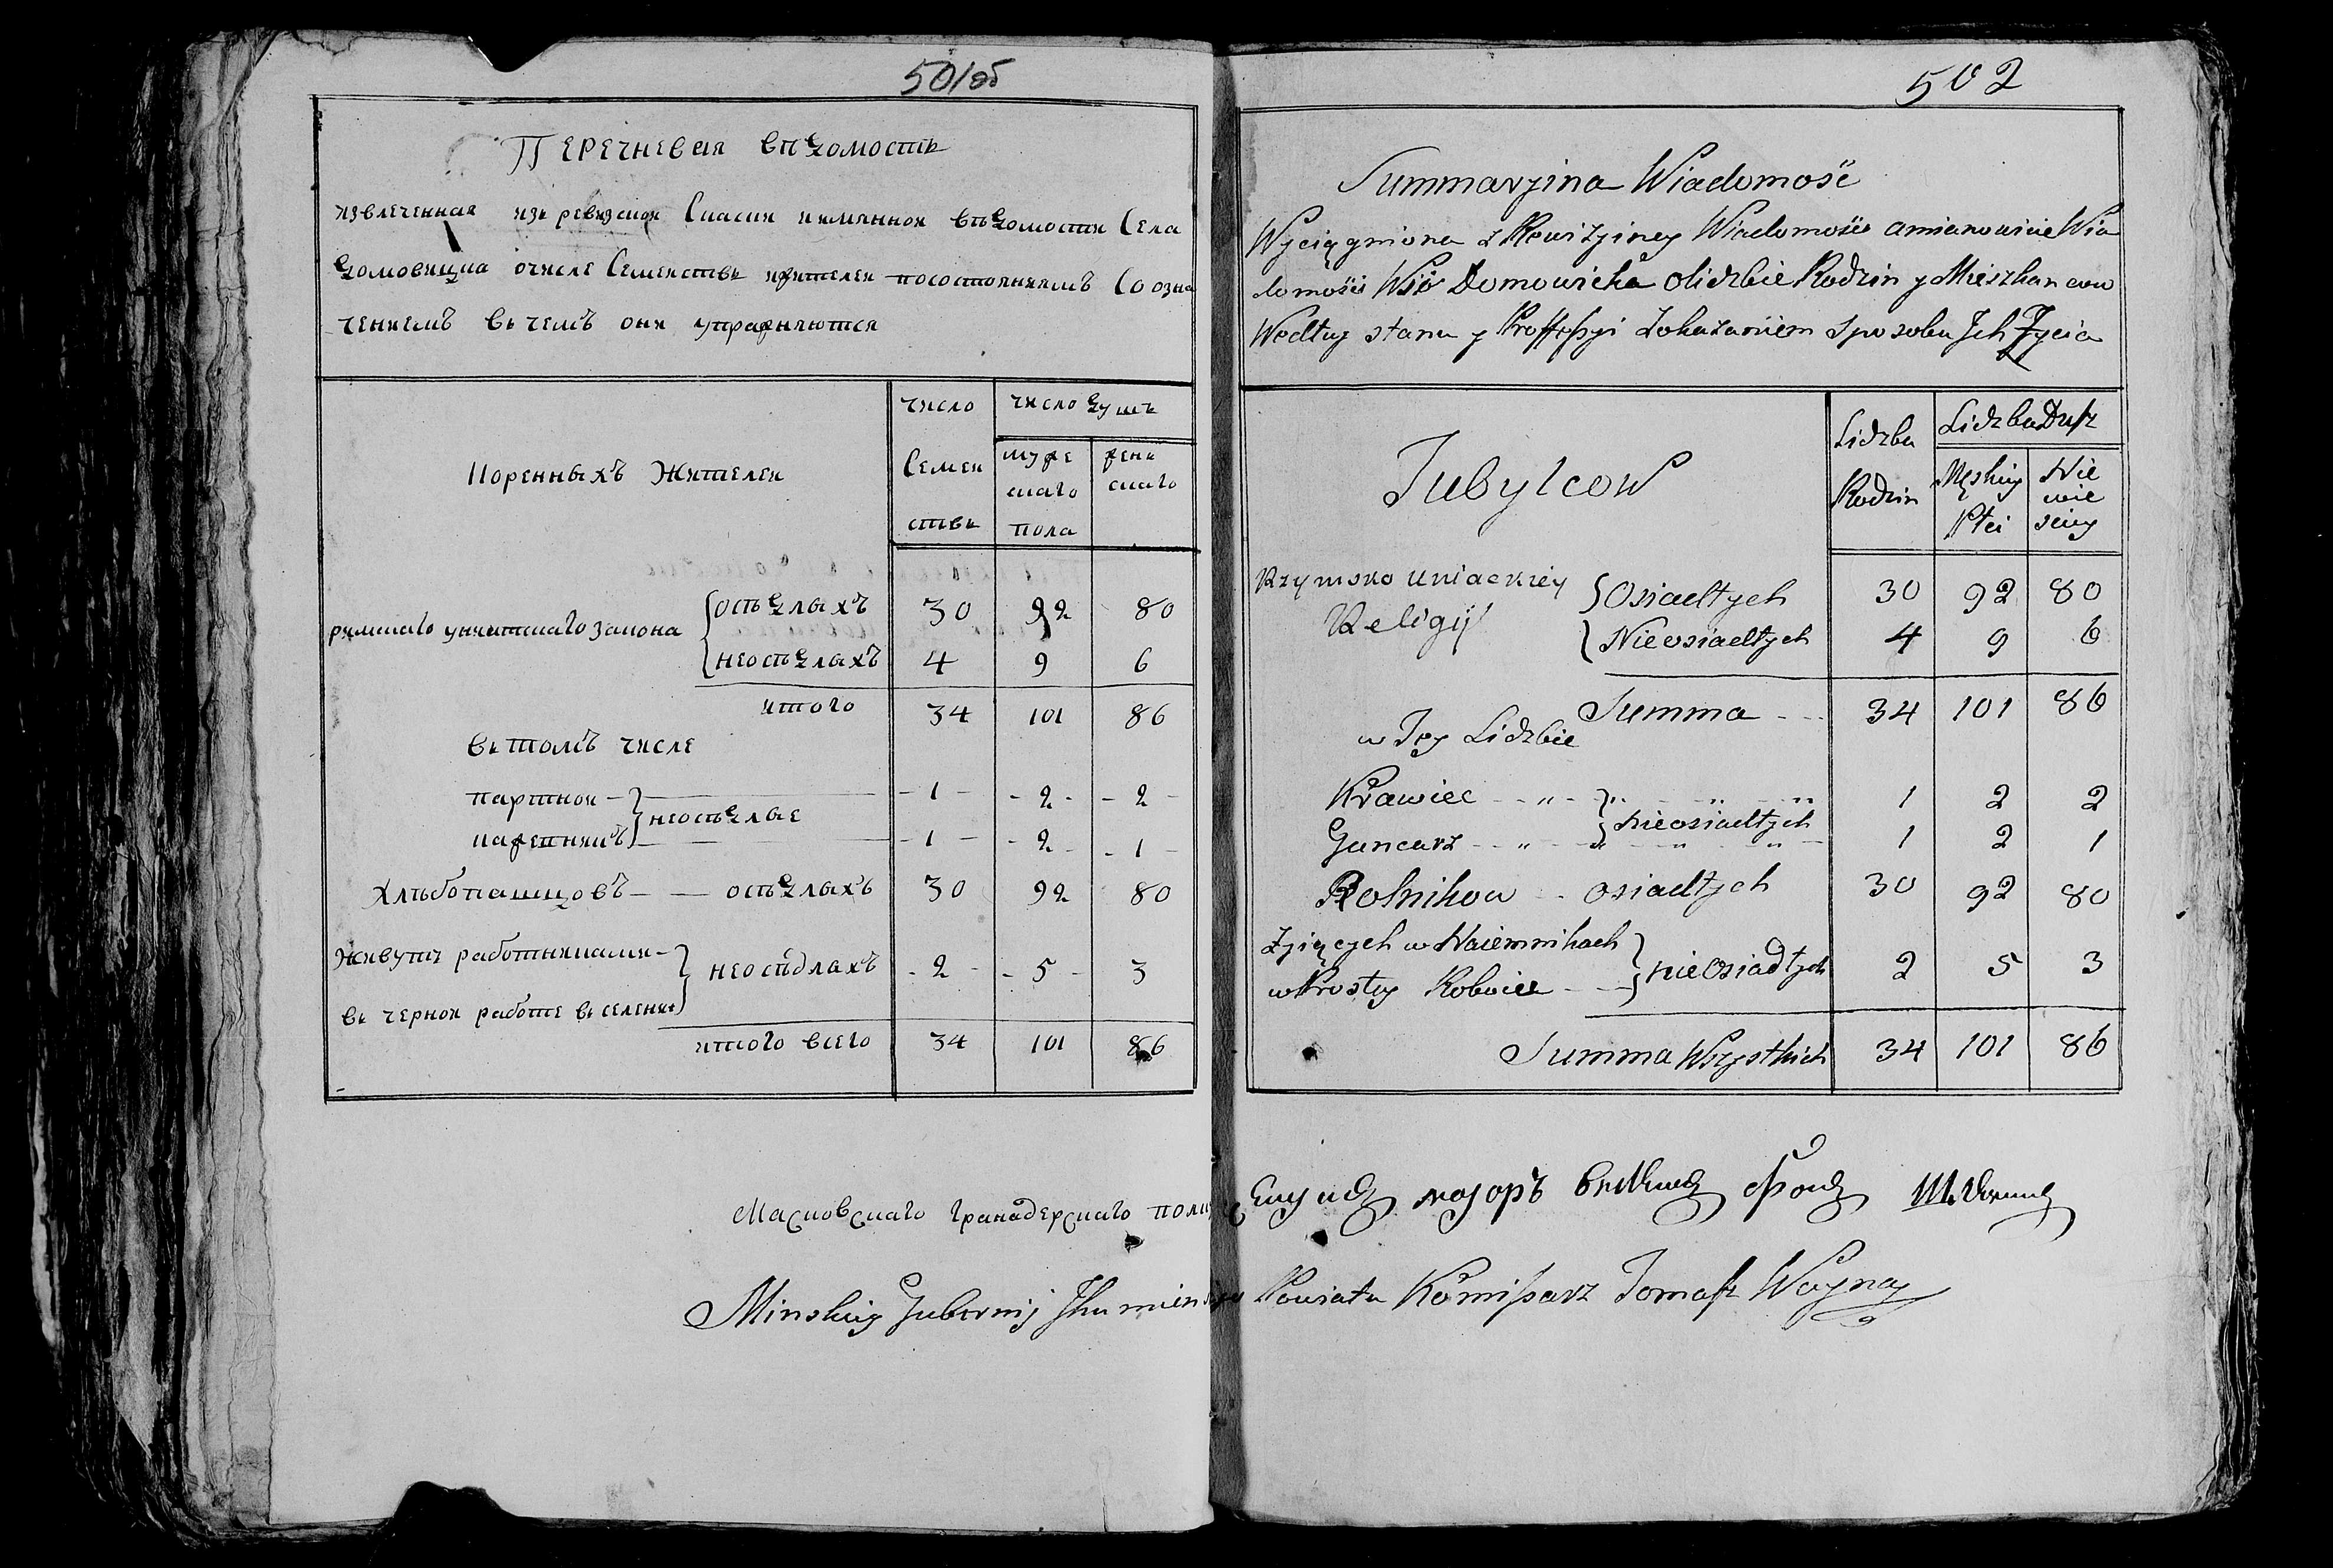 501об
Перечневая вѣдомость
извлеченная изъ ревизской Сказки имянной вѣдомости Села
домовицка очисле Семействъ жителей посостояниямъ Со озна
чениемъ въ чемъ они упражняются
Коренныхъ Жителей
число Семей ствъ
число душъ
муже скаго пола
жен скаго
римскаго униатскаго закона { осѣдлыхъ 30 92 80
неосѣдлыхъ 4 9 6
итого 34 101 86
въ томъ числе
партной – } неосѣдлые – 1 – – 2 – – 2 –
– 1 – – 2 – – 1 –
Хлѣбопашцовъ – – осѣдлыхъ 30 92 80
Живутъ работниками – } неосѣдлахъ – 2 – – 5 – 3
въ черной работе въ селении
итого всего 34 101 86
502
Summaryina Wiadomość
Wyciągniona z Rewizyiney Wiadomości amianowicie Wia
domości Wsi Domowicka o lidzbie Rodzin y Mieszkancow
Wedłuy stanu y Proffessyi zokazaniem sposobu Jch Zycia
Tubylcow
Lidzba Rodzin
Lidzba Dusz
Męskiey Płci
Nie wie sciey
Rzymsko uniackiey { Osiadłych 30 92 80
Religij { Nieosiadłych 4 9 6
Summa - - 34 101 86
w Tey Lidzbie
Krawiec - - " - } " " " 1 2 2
nieosiadłych
Guncarz - - " - " " " 1 2 1
Rolnikow - - osiadłych 30 92 80
Zyiących w Naiemnikach } nieosiadłych 2 5 3
w Prostey Robocie - -
Summa Wszystkich 34 101 86
Масковскаго гранадерскаго полку маиоръ
Minskiey Gubernij Jhumienskiego Powiatu Komissarz Tomasz Woyna